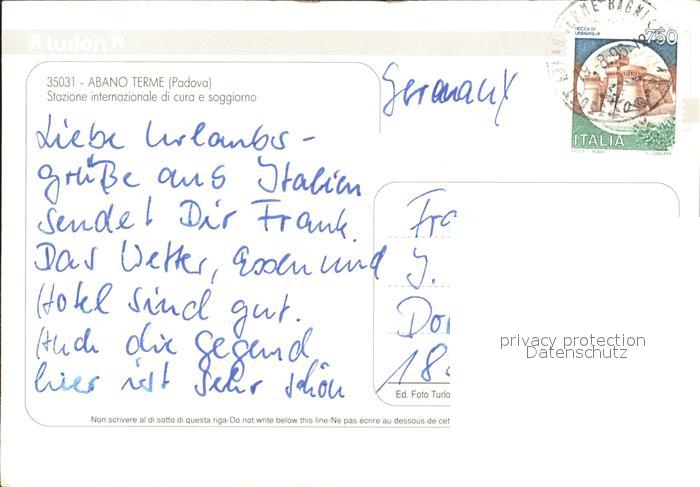 turlon
35031 - ABANO TERME (Padova)
Stazione internazionale di cura e soggiorno
Germany
ROCCA DI URBISAGLIA
750
ITALIA
Liebe Urlaubs-
grüße aus Italien
sendet Dir Frank.
Das Wetter, Essen und
Hotel sind gut.
Auch die Gegend
hier ist sehr schön
Fra
J.
Dor
18
privacy protection
Datenschutz
Ed. Foto Turlo
Non scrivere al di sotto di questa riga-Do not write below this line-Ne pas écrire au dessous de cet